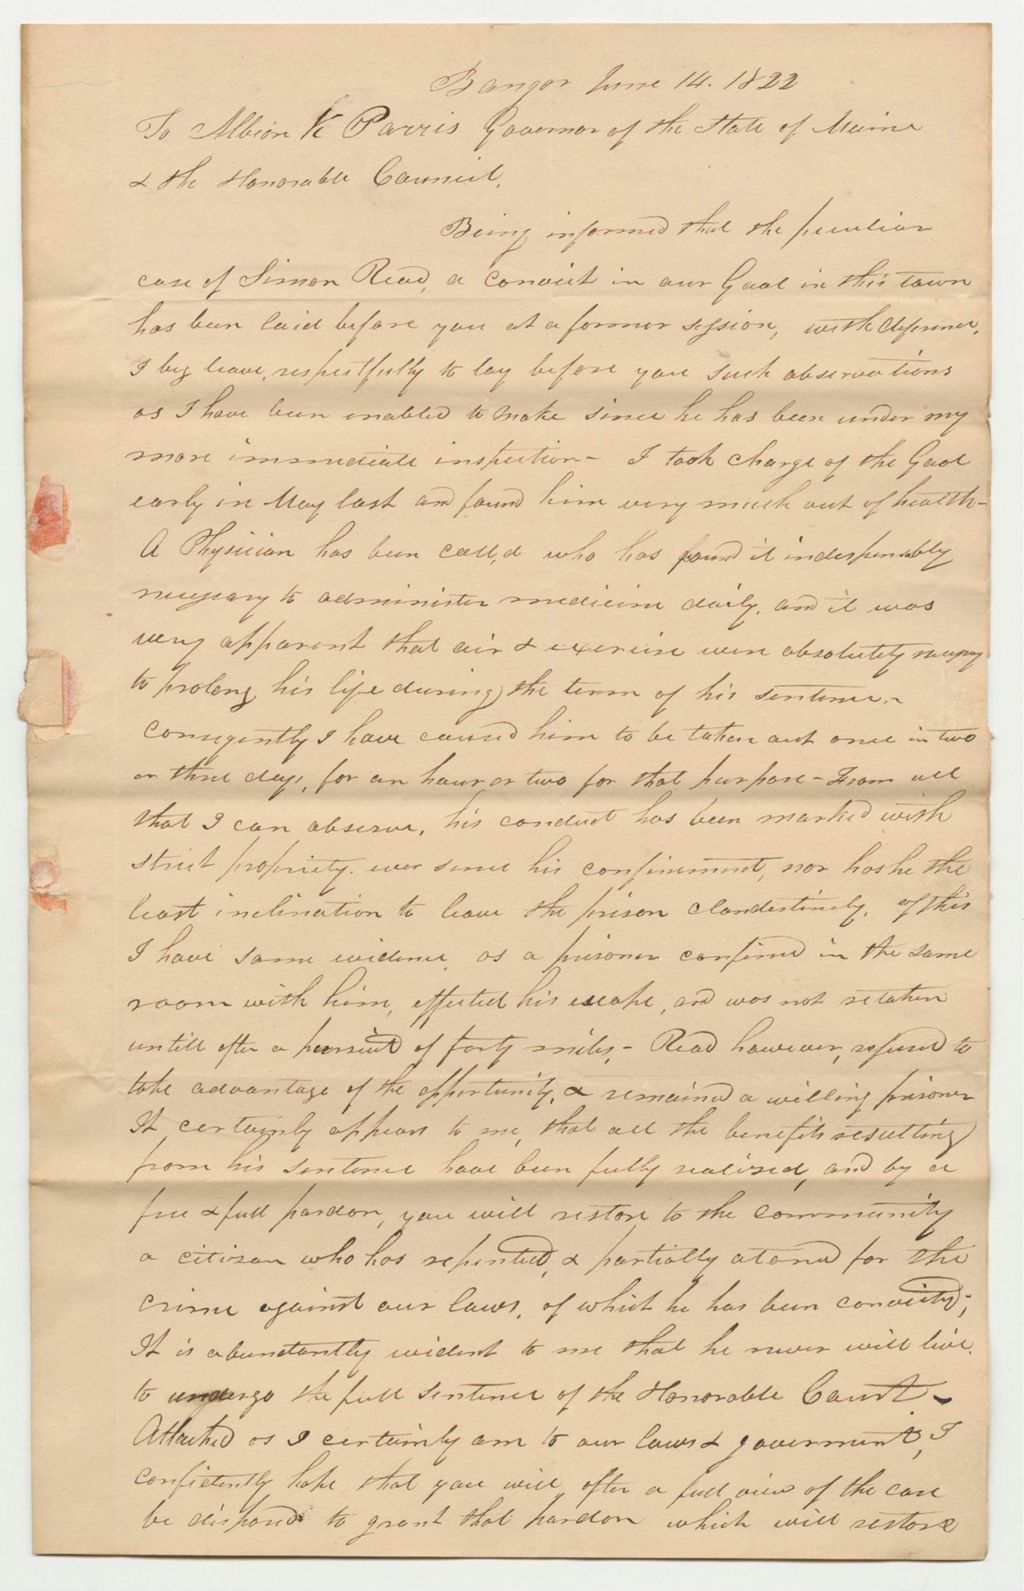 Bangor June 14. 1822
To Albion K Parris Governor of the State of Maine
& the Honorable Council.
Being informed that the peculiar
case of Simon Read, a convict in our Gaol in this town
has been laid before you at a former session, with deference,
I beg leave, respectfully to lay before you such observations
as I have been enabled to make since he has been under my
more immediate inspection - I took charge of the Gaol
early in May last and found him very much out of health -
A Physician has been call,d who has found it indispensably
necessary to administer medicine daily. and it was
very apparent that air & exercise were absolutely necessary
to prolong his life during the term of his sentence. -
Conseqently I have caused him to be taken out once in two
or three days, for an hour or two for that purpose - From all
that I can observe, his conduct has been marked with
strict propriety. ever since his confinement, nor has he the
least inclination to leave the prison clandestinely, of this
I have some evidence, as a prisoner confined in the same
room with him, effected his escape, and was not retaken
untill after a persuit of forty miles, - Read however, refused to
take advantage of the opportunity, & remained a willing prisoner
It certainly appears to me, that all the benefits resulting
from his sentence have been fully realized, and by a
free & full pardon, you will restore to the community
a citizan who has repented, & partially atoned for the
crime against our laws, of which he has been convicted;
It is abundantly evident to me that he never will live
to undergo the full sentence of the Honorable Court -
Attached as I certainly am to our laws & goverment, I
confidently hope that you will after a full view of the case
be disposed to grant that pardon which will restore